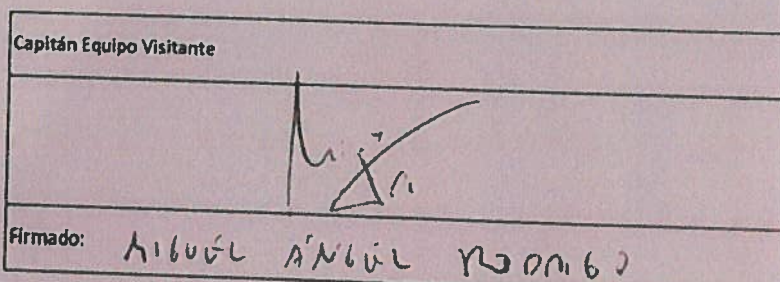 Capitán Equipo Visitante
Firmado: MIGUEL ÁNGEL RODRIGO